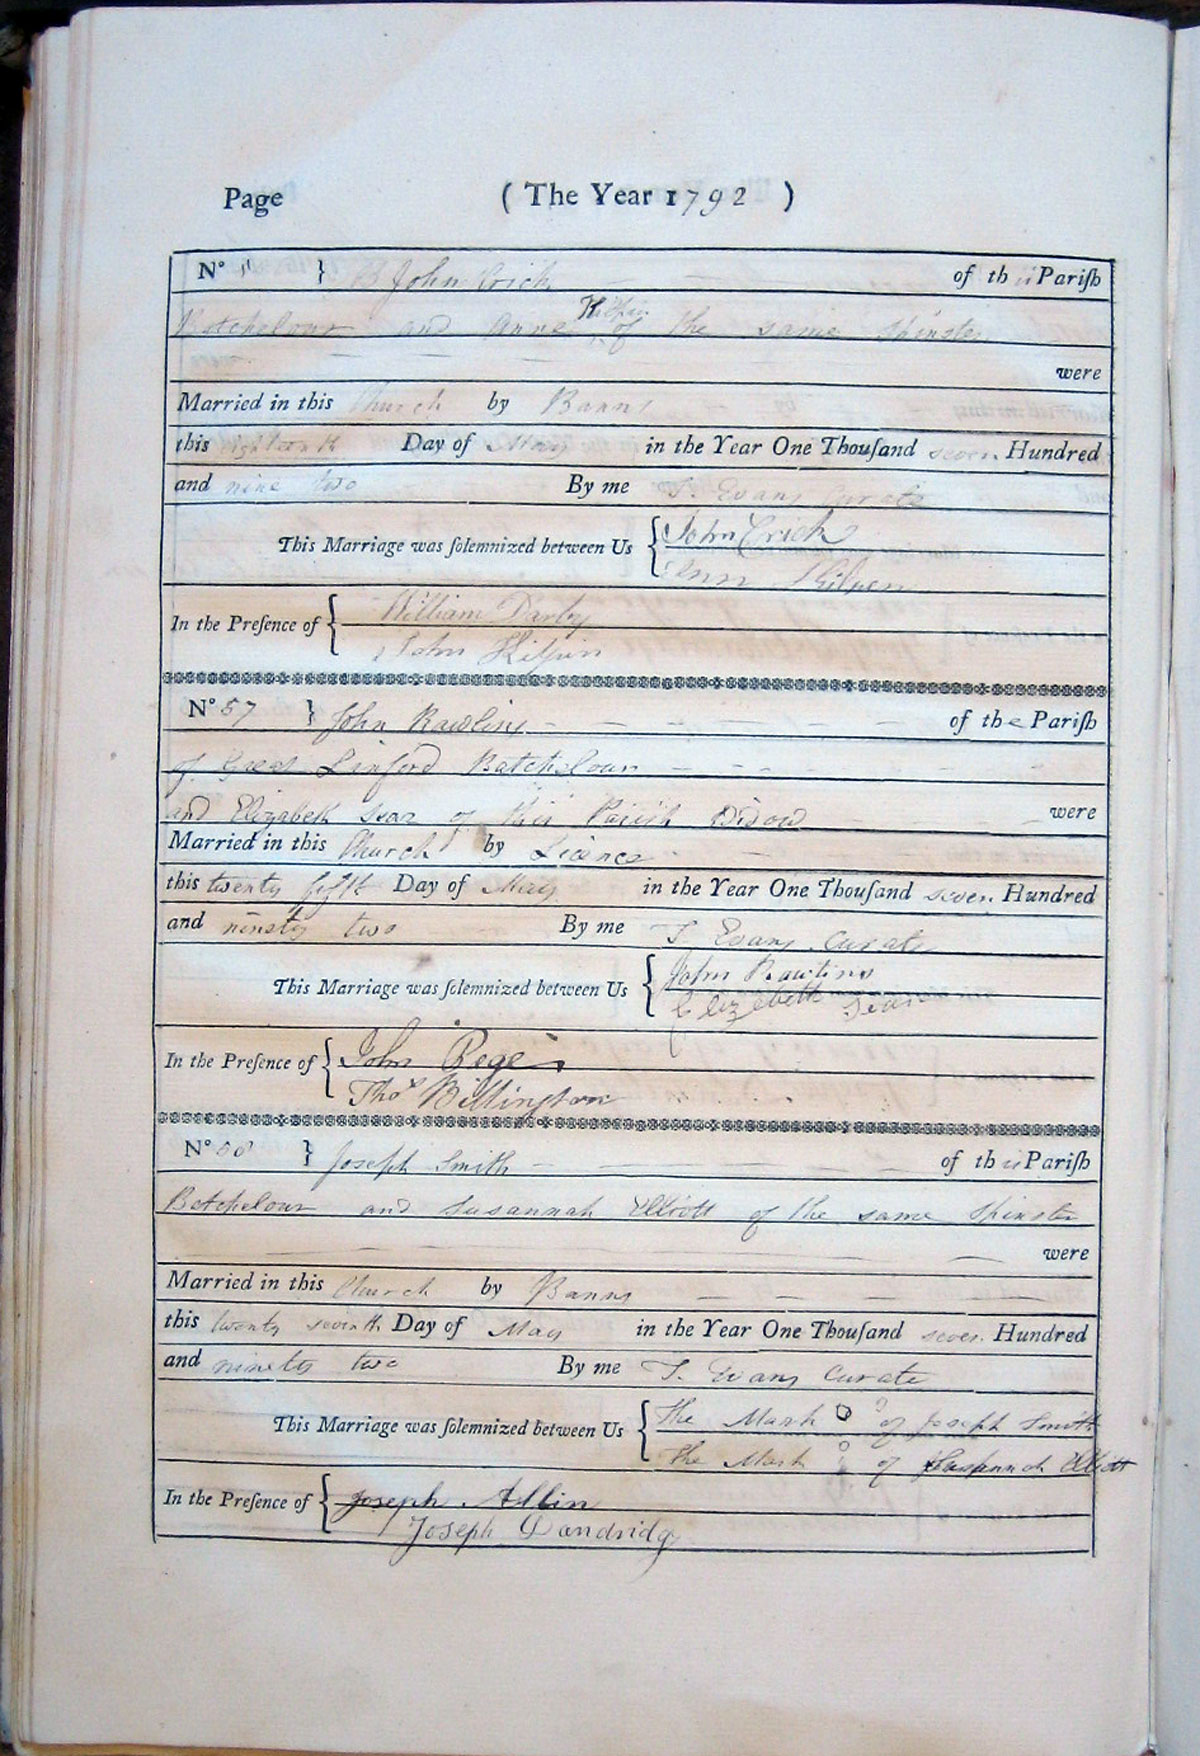 Page ( The Year 1792 )
No } John Crick of this Pariſh
Kilpin
Batchelour and Anne of the same Spinster
were
Married in this Church by Banns
this eighteenth Day of May in the Year One Thouſand seven Hundred
and nine two By me T. Evans Curate
This Marriage was ſolemnized between Us { John Crick
Ann Kilpen
In the Preſence of { William Darby
John Kilpin
No 57 } John Rawlins of the Pariſh
of Great Linford Batchelour
and Elizabeth of this Parish Widow were
Married in this Church by Licence
this twenty fifth Day of May in the Year One Thouſand seven Hundred
and ninety two By me T Evans Curate
This Marriage was ſolemnized between Us { John Rawlins
Elizabeth
In the Preſence of { John Rege
Thos Billington
No 58 } Joseph Smith of this Pariſh
Batchelour and Susannah Elliott of the same Spinster
were
Married in this Church by Banns
this twenty seventh Day of May in the Year One Thouſand seven Hundred
and ninety two By me T. Evans Curate
This Marriage was ſolemnized between Us { The Mark of Joseph Smith
The Mark of Susannah Elliott
In the Preſence of { Joseph Allin
Joseph Dandridg